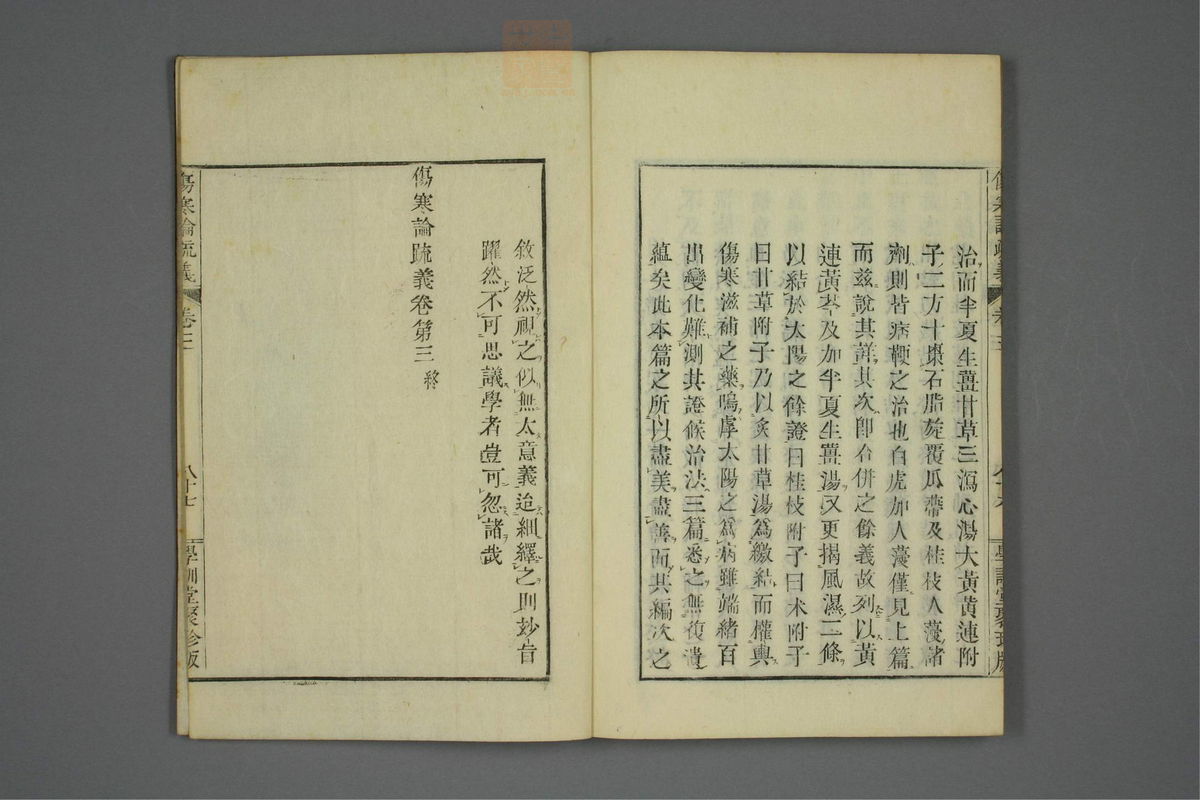 治而半夏生薑甘草三瀉心湯大黃黃連附
子二方十棗石脂旋覆瓜蒂及桂枝人薓諸
劑則皆痞鞕之治也白虎加人薓僅見上篇
而茲說其詳其次卽合併之餘義故列以黃
連黃芩及加半夏生薑湯又更揭風濕二條
以結於太陽之餘證曰桂枝附子曰朮附子
曰甘草附子乃以炙甘草湯爲繳結而權輿
傷寒滋補之藥嗚虖太陽之爲病雖端緒百
出變化難測其證候治法三篇悉之無復遺
蘊矣此本篇之所以盡美盡善而其編次之
傷寒論疏義
卷三
學訓堂聚珍版
敘泛然視之似無太意義迨細繹之則玅旨
躍然不可思議學者豈可忽諸哉
傷寒論疏義卷第三 終
傷寒論疏義
卷三
八十七
學訓堂聚珍版